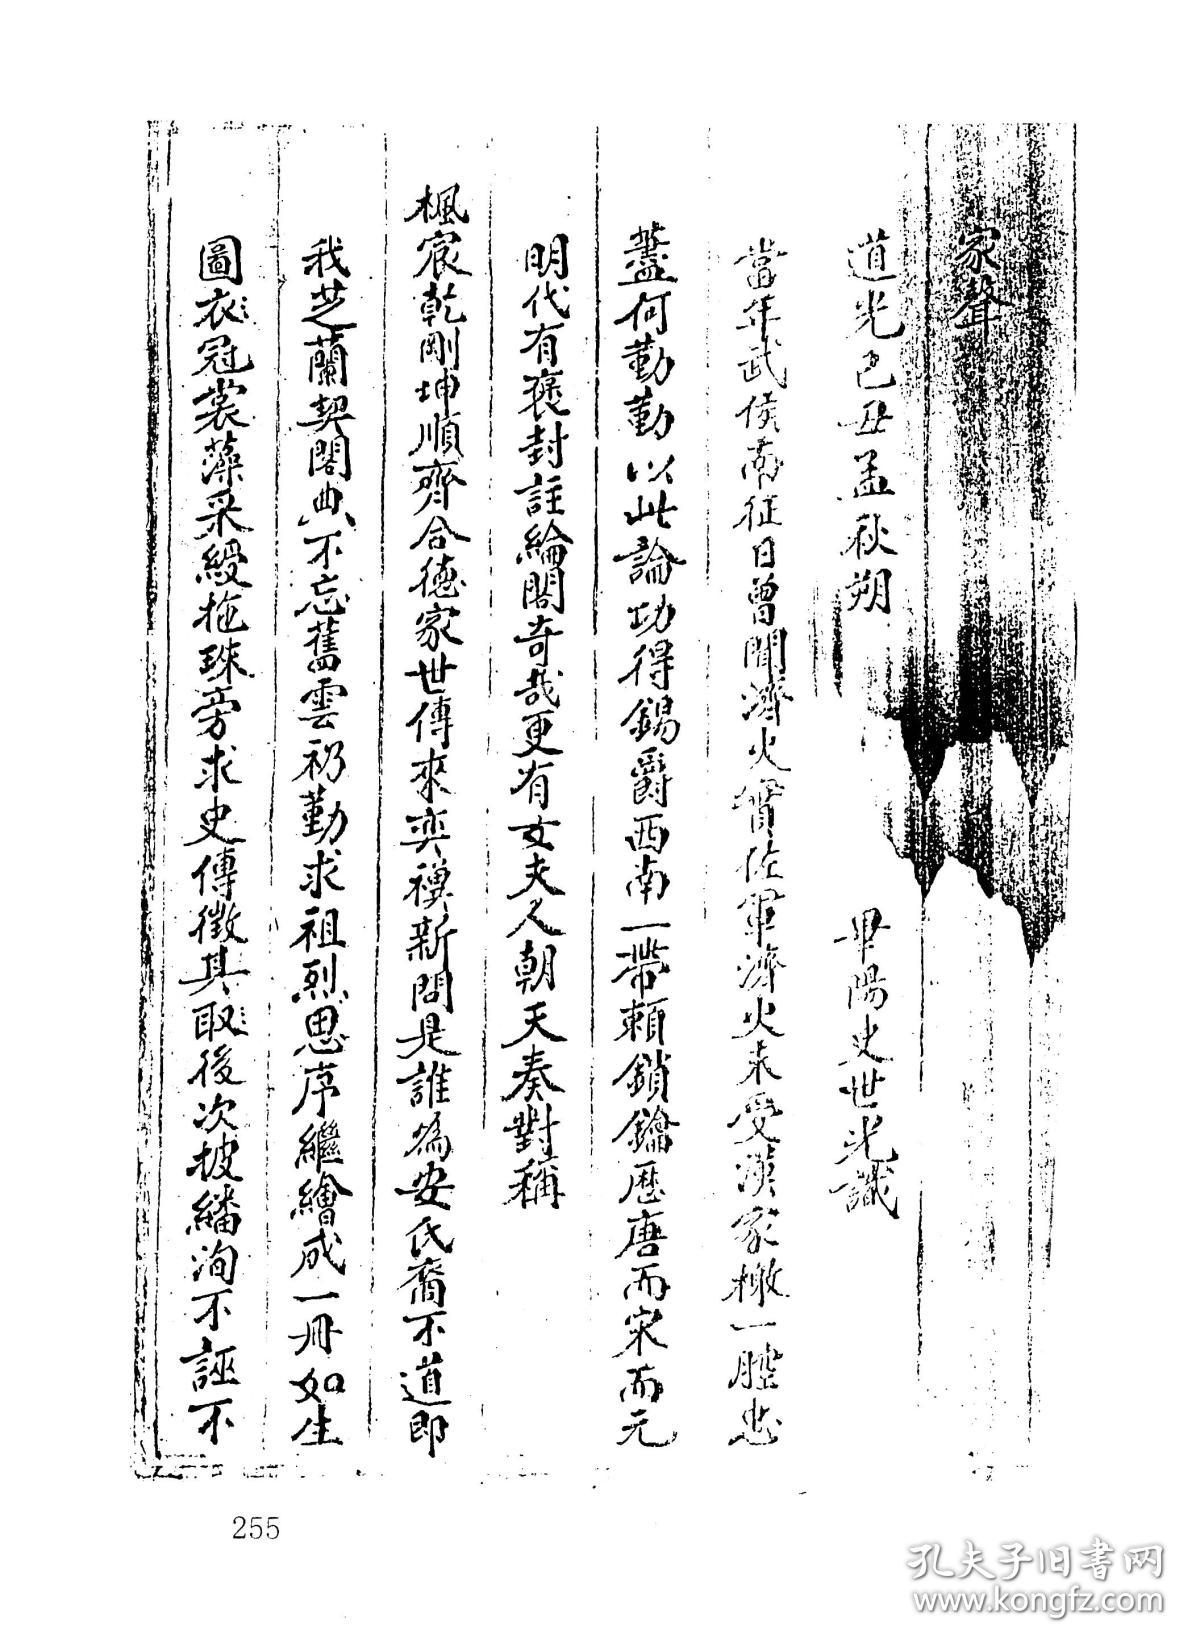 家聲
道光己丑孟秋朔 畢陽史世光識
當年武侯南征日曾聞濟火實佐軍濟火未受漢家檄一腔忠
藎何勤勤以此論功得錫爵西南一帶賴鎖鑰歷唐而宋而元
明代有褒封註綸閣奇哉更有女夫人朝天奏對稱
楓宸乾剛坤順齊合德家世傳來奕禩新問是誰為安氏裔不道即
我芝蘭契閣典不忘舊雲礽勤求祖烈思序繼繪成一冊如生
圖衣冠裳藻采綬拖珠旁求史傳徵其取後次披繙洵不誣不
255
孔夫子旧书网
www.kongfz.com